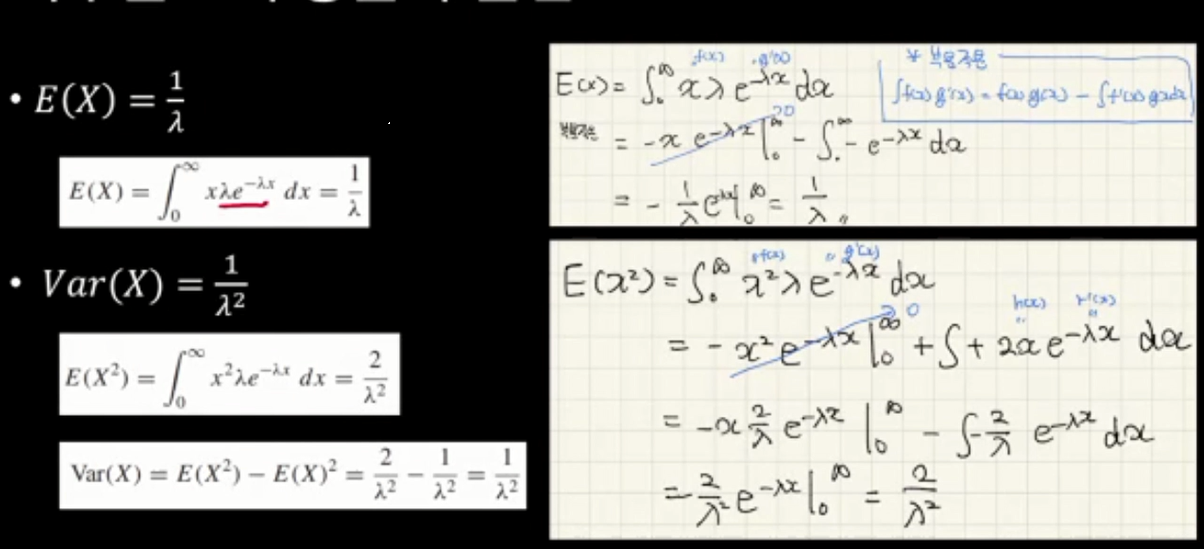 • E(X) = 1/λ
E(X) = ∫₀^∞ xλe^{-λx} dx = 1/λ
• Var(X) = 1/λ²
E(X²) = ∫₀^∞ x²λe^{-λx} dx = 2/λ²
Var(X) = E(X²) − E(X)² = 2/λ² − 1/λ² = 1/λ²
f(x) g'(x)
E(x) = ∫₀^∞ xλ e^{-λx} dx
* 부분적분
∫f(x) g'(x) = f(x) g(x) − ∫f'(x) g(x)dx
부분적분 = -x e^{-λx} |₀^∞ − ∫₀^∞ - e^{-λx} dx
0
= - 1/λ e^{-λx} |₀^∞ = 1/λ
f(x) " g'(x)
E(x²) = ∫₀^∞ x²λ e^{-λx} dx
0 h(x) " h'(x) "
= - x² e^{-λx} |₀^∞ + ∫ + 2x e^{-λx} dx
= -x 2/λ e^{-λx} |₀^∞ − ∫ - 2/λ e^{-λx} dx
= - 2/λ² e^{-λx} |₀^∞ = 2/λ²